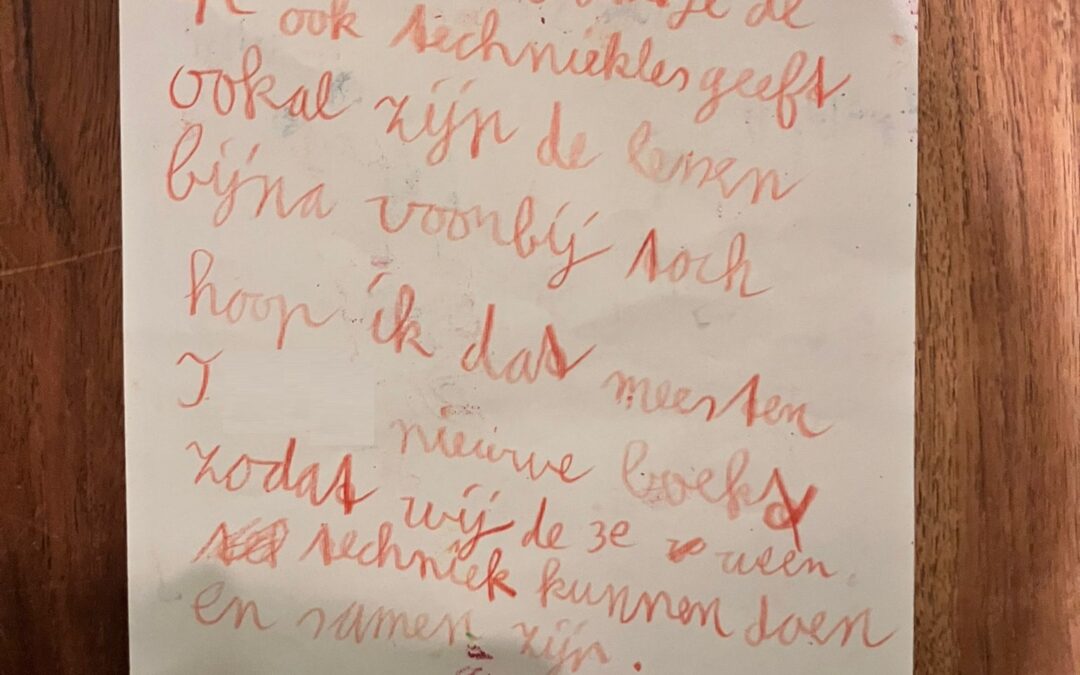 de
ook techniekles geeft
ookal zijn de lessen
bijna voorbij toch
hoop ik dat meester
J
nieuwe boekt
zodat wij de 3e weer
techniek kunnen doen
en samen zijn.